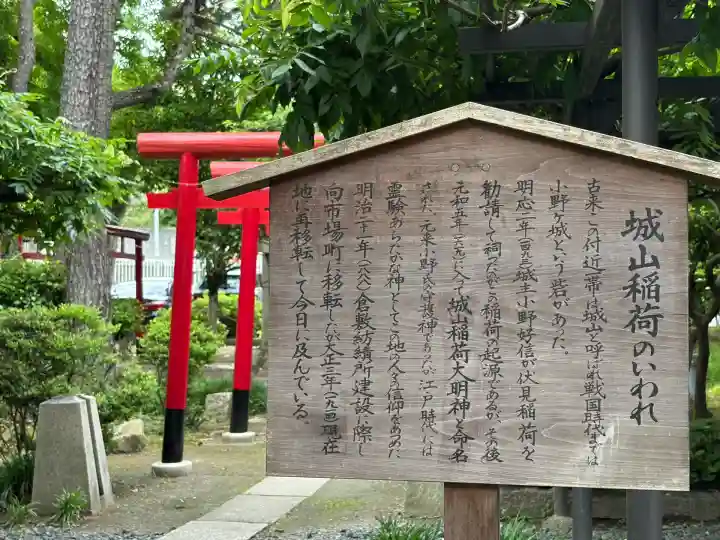 城山稲荷のいわれ
古来この付近一帯は城山と呼ばれ戦国時代までは
小野ヶ城という砦があった。
明応二年(一四九三)城主小野好信が伏見稲荷を
勧請して祠ったのがこの稲荷の起源であるが、その後
元和五年(一六一九)に入って城山稲荷大明神と命名
された。元来小野氏の守護神であったが江戸時代には
霊験あらたかな神としてこの地の人々の信仰をあつめた。
明治二十一年(一八八八)倉敷紡績所建設に際し
向市場町に移転したが大正三年(一九一四)現在
地に再移転して今日に及んでいる。